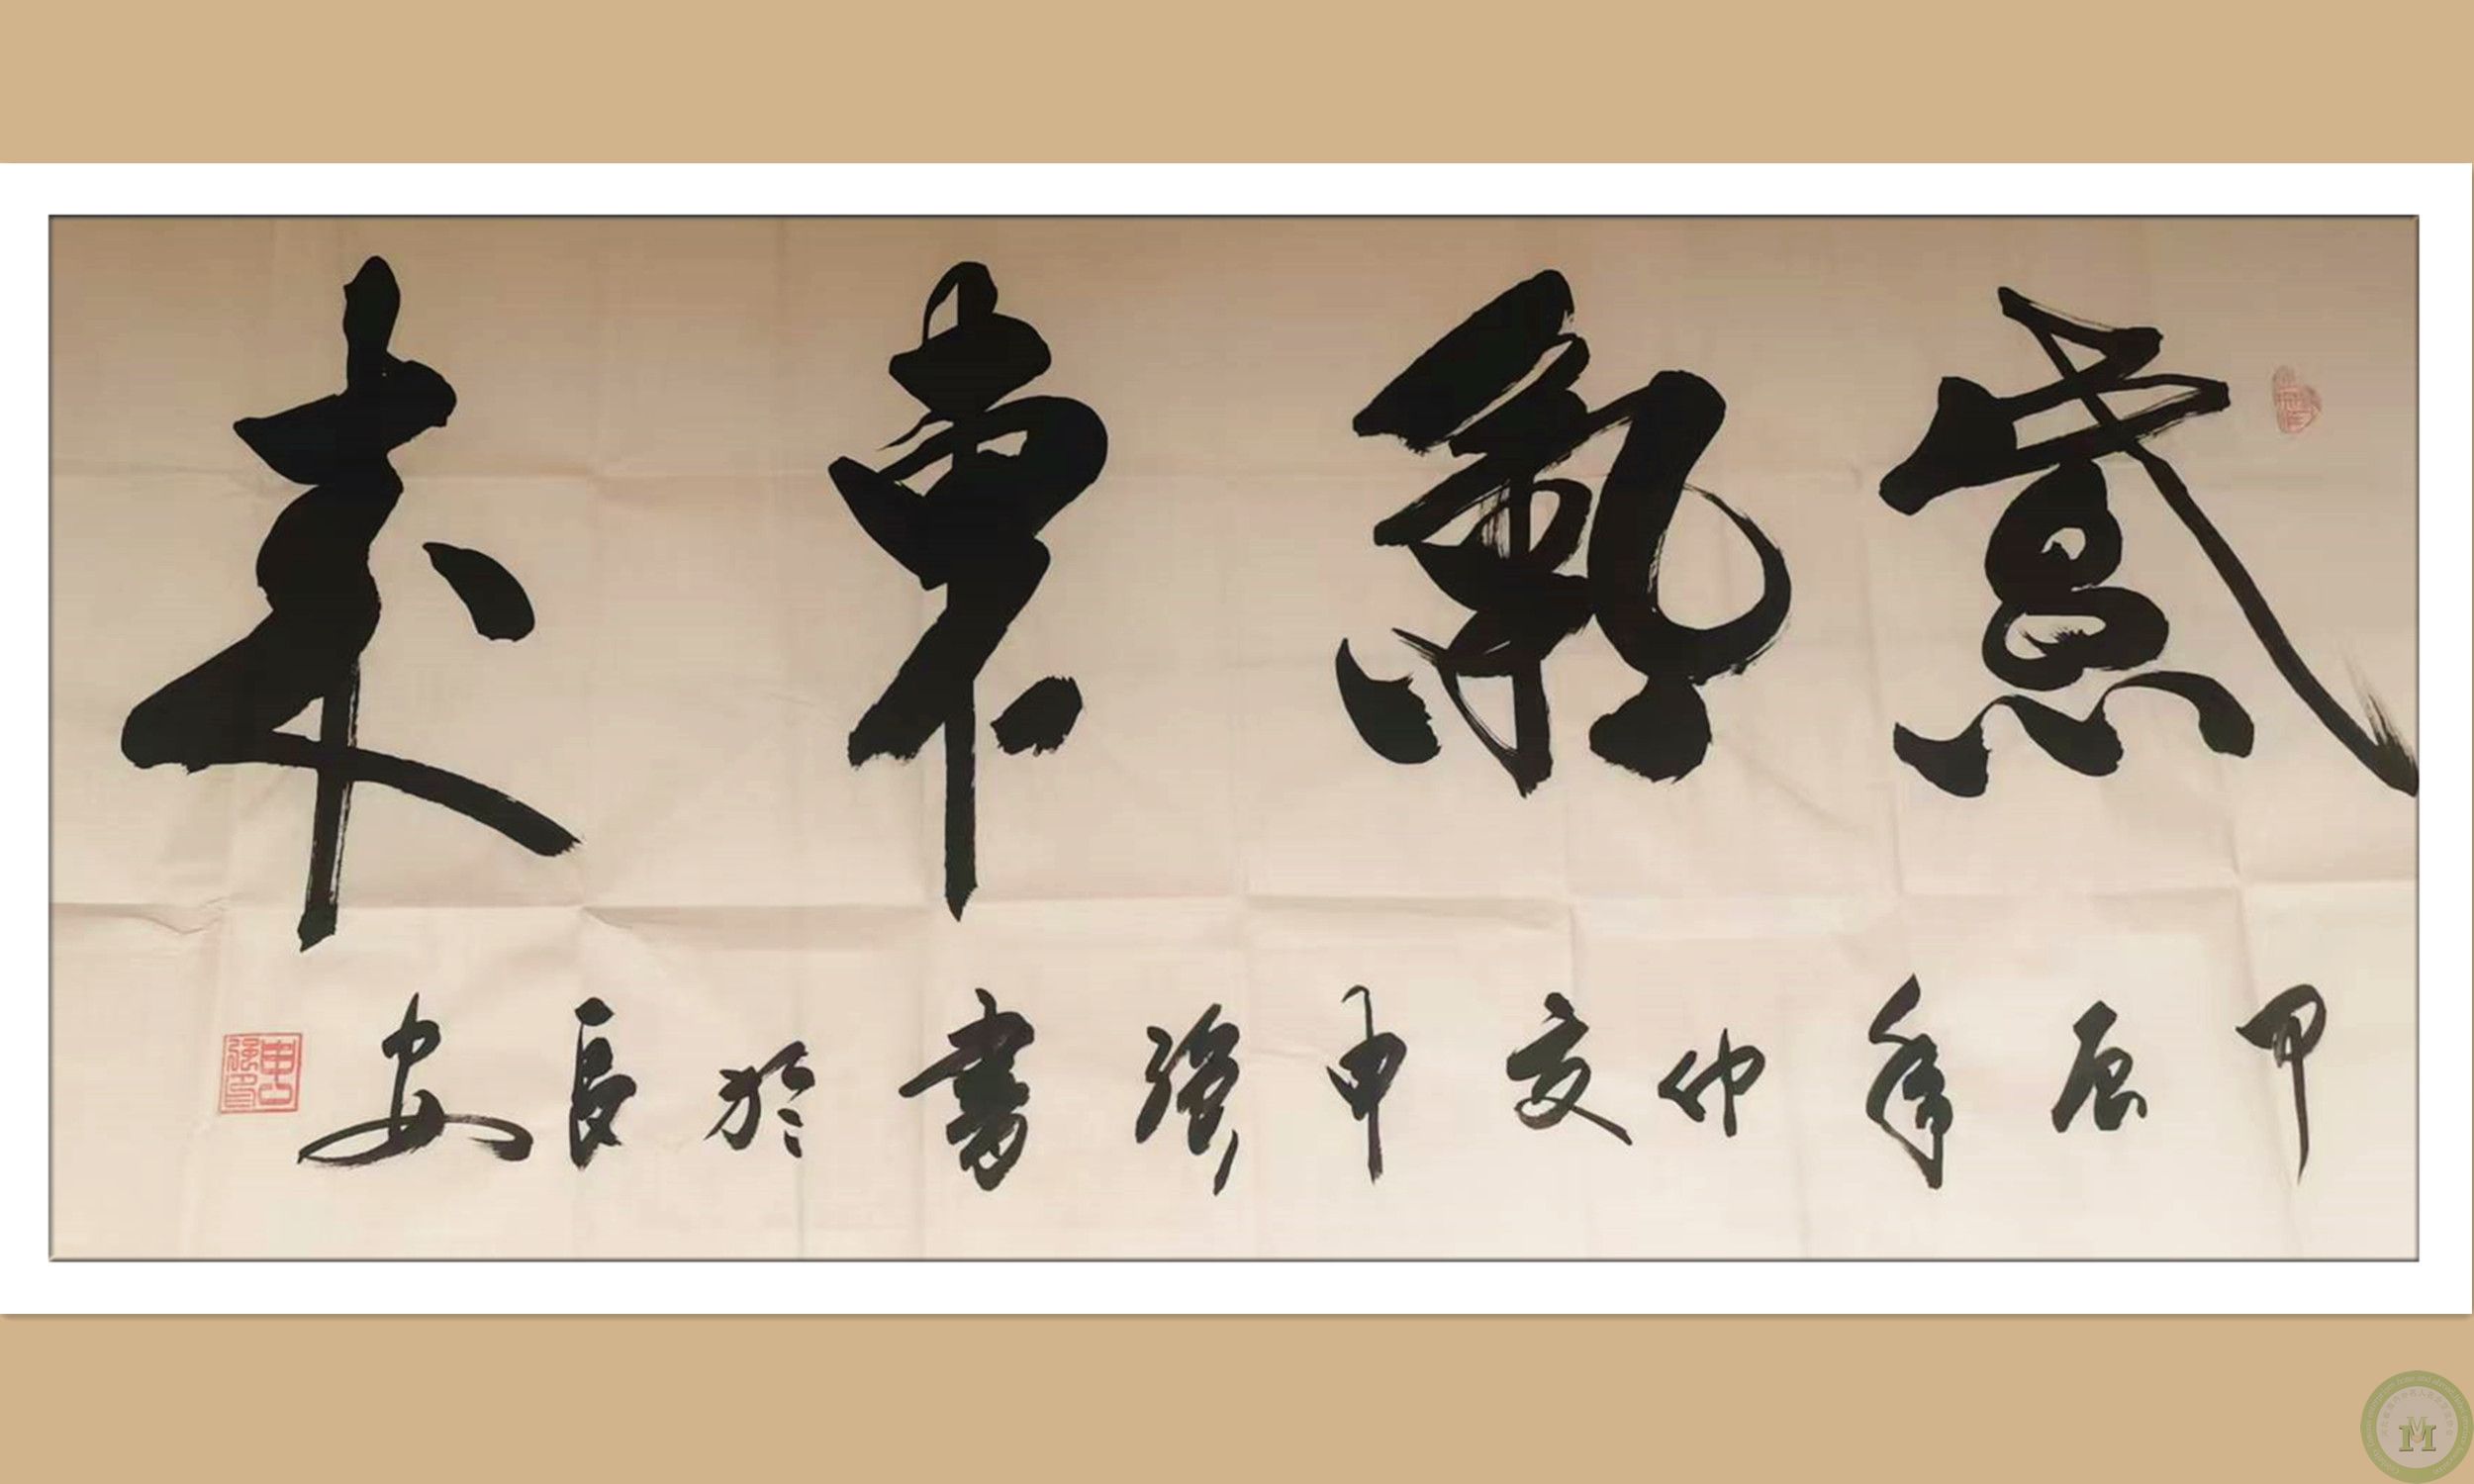 紫氣東來
甲辰年仲夏申强書於長安